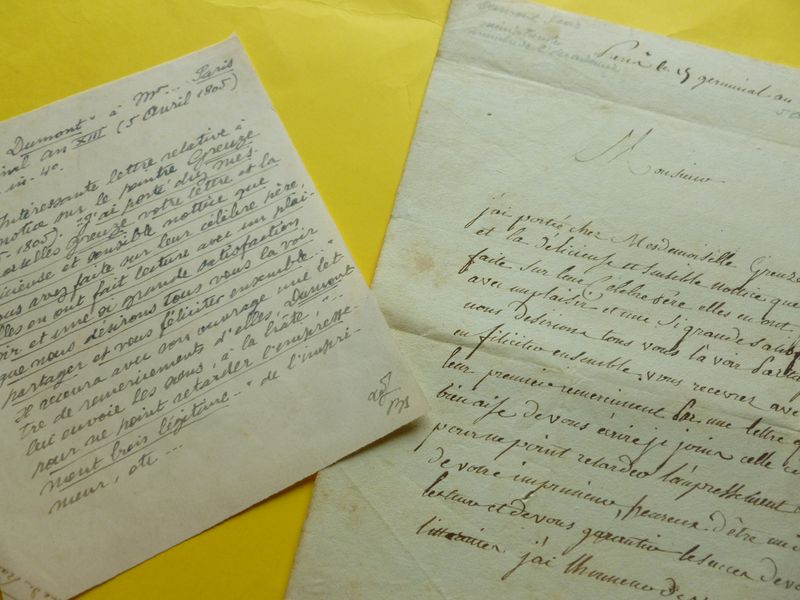 Dumont" à Mr... Paris
an XIII (5 Avril 1805)
in-4º.
Intéressante lettre relative à
notice sur le peintre Greuze
1805). "J'ai porté chez mes.
Greuze votre lettre et la
et sensible notice que
vous avez faite sur leur célèbre père,
elles en ont fait lecture avec un plai-
sir et une si grande satisfaction
que nous désirons tous vous la voir
partager et vous féliciter ensemble..."
Il recevra avec son ouvrage une let
tre de remerciements d'elles. Dumont
lui envoie les siens, à la hâte, "...
pour ne point retarder l'empresse-
ment trois légitime..." de l'impri-
meur, etc...
Dumont
germinal an
Monsieur
j'ai porté chez Mesdemoiselle Greuze
et la délicieuse et sensible notice que
faite sur leur Celebre père elles en ont
avec un plaisir et une si grande
nous desirions tous vous la voir
en féliciter ensemble. vous recevrez avec
leur premier remerciment par une lettre
bien aise de vous écrire je joins celle ci
pour ne point retarder l'empressement
de votre imprimeur, heureux d'être
et de vous garantir le succès de
j'ai l'honneur de